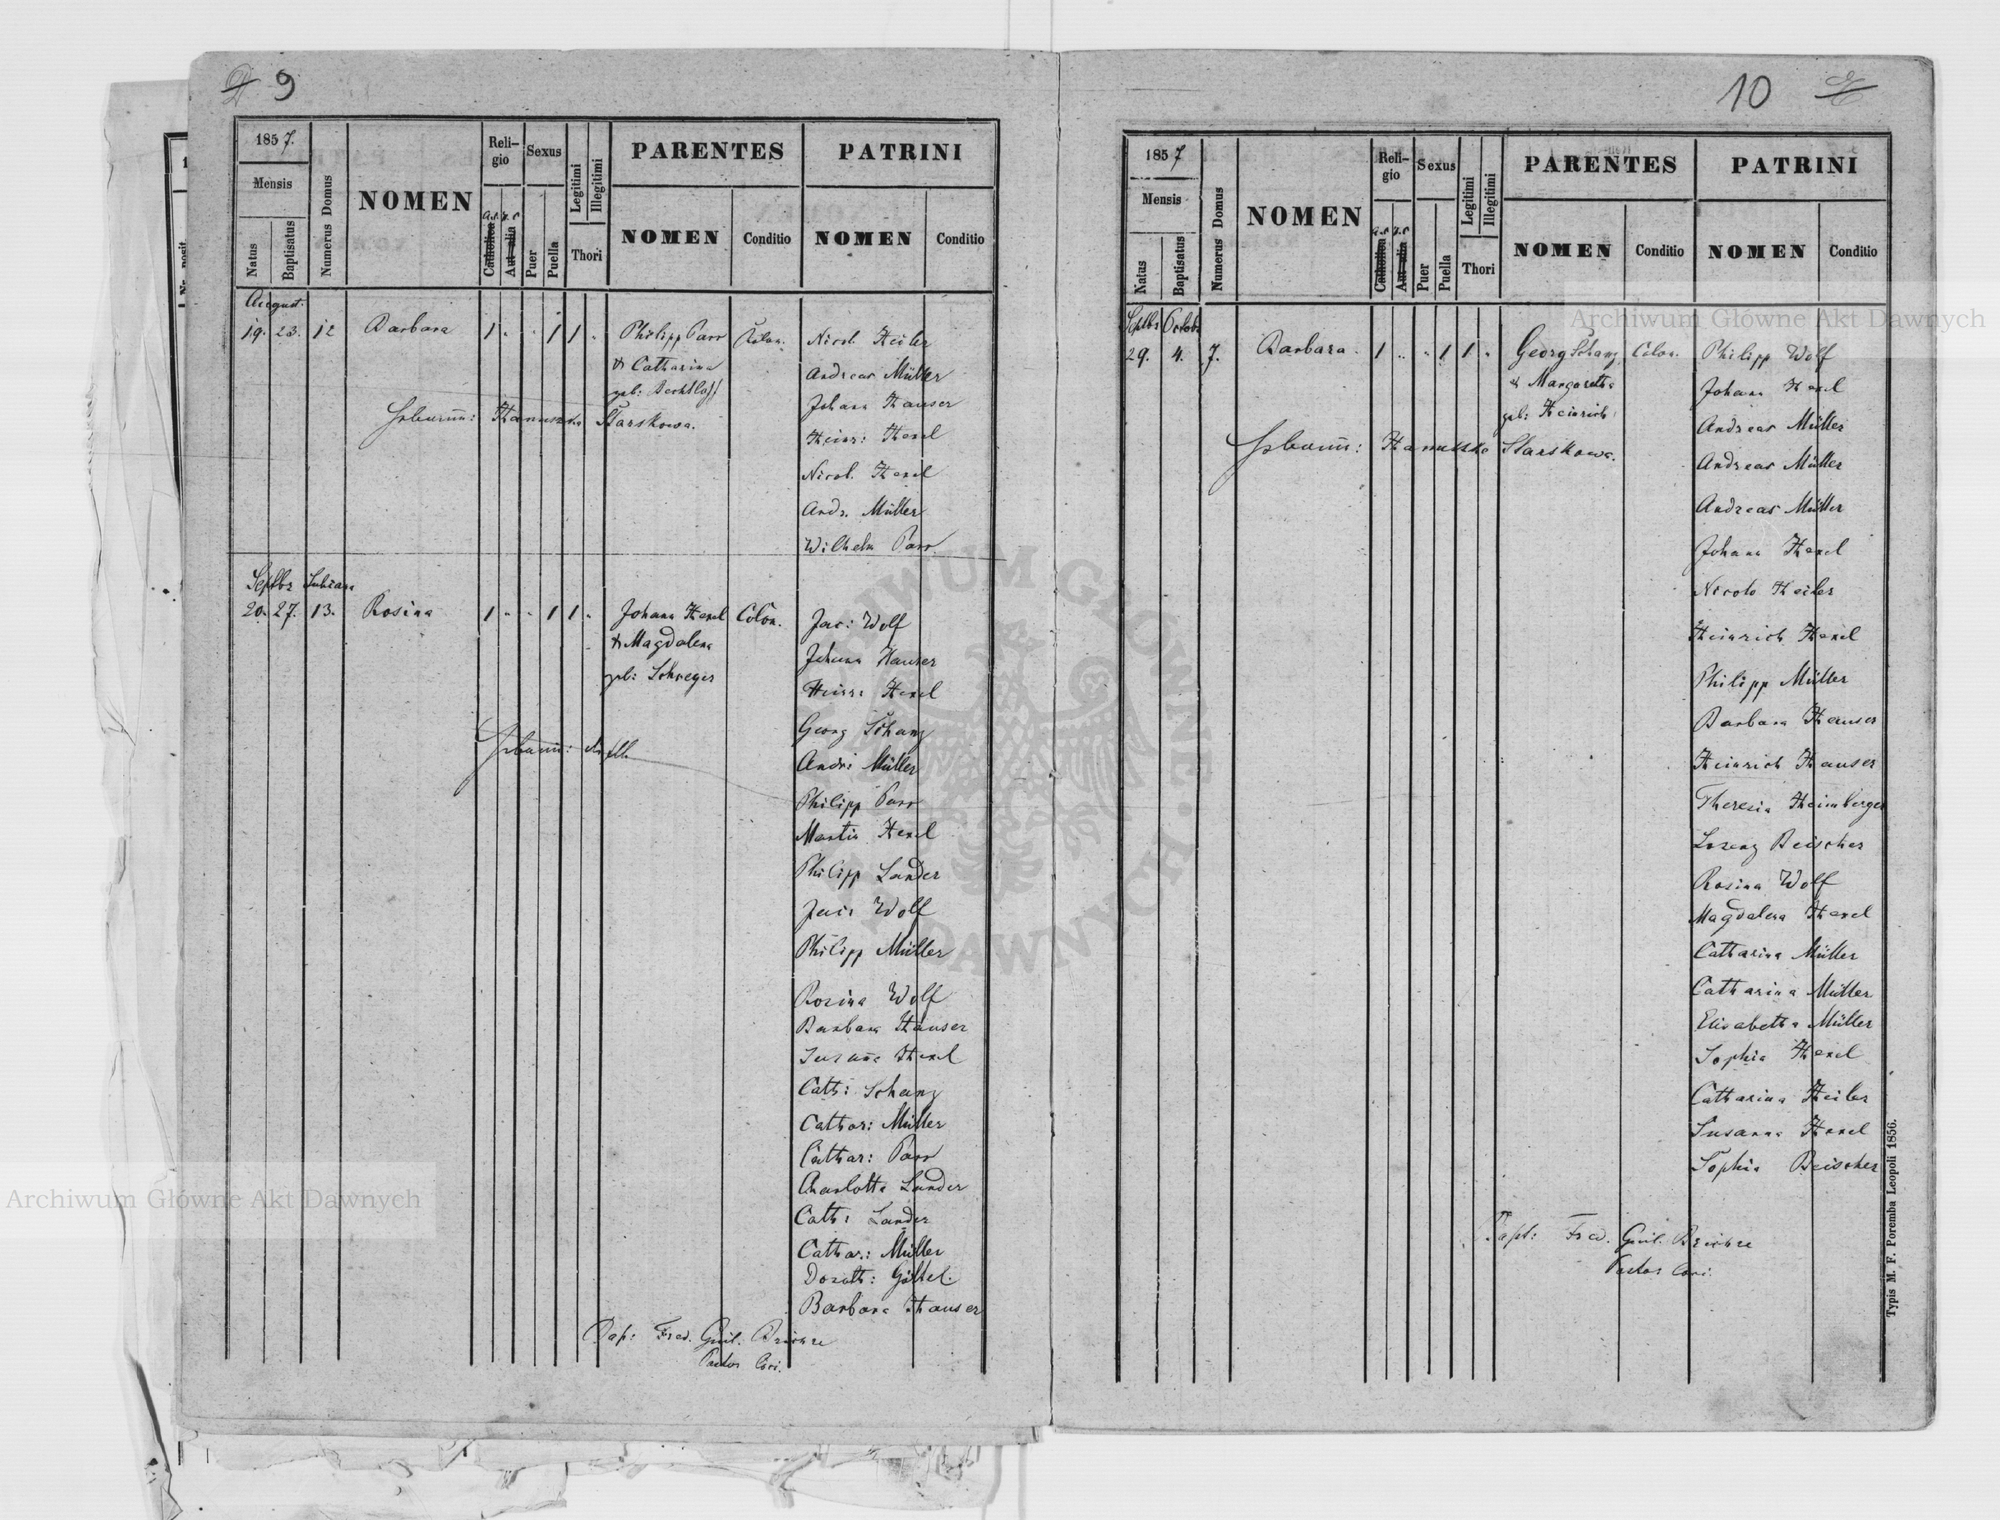 9
1857.
Mensis
Natus
Baptisatus
Numerus Domus
NOMEN
Religio
a. c.
Catholica
Aut alia
Sexus
Puer
Puella
Legitimi
Illegitimi
Thori
PARENTES
NOMEN
Conditio
PATRINI
NOMEN
Conditio
August.
19. 23. 12 Barbara 1 " " 1 1 " Philipp Parr Colon.
& Catharina
geb: Bechtloff
Hebamm: Hanuszka Starskowa.
Nicol Heiler
Andreas Müller
Johann Hauser
Heinr: Hexel
Nicol. Hexel
Andr. Müller
Wilhelm Parr
Septbr
20. 27. 13. Rosina 1 " " 1 1 " Johann Hexel Colon.
& Magdalena
geb: Schreyer
Hebamm:
Jac: Wolf
Johann Hauser
Heinr: Hexel
Georg Schanz
Andr: Müller
Philipp Parr
Martin Hexel
Philipp Lander
Jac: Wolf
Philipp Müller
Rosina Wolf
Barbara Hauser
Susanna Hexel
Cath: Schanz
Cathar: Müller
Cathar: Parr
Charlotte Lander
Cath: Lander
Cathar: Müller
Doroth: Göttel.
Barbara Hauser
Bap: Fred. Guil.
Pastor
10
1857
Mensis
Natus
Baptisatus
Numerus Domus
NOMEN
Religio
a. c.
Catholica
Aut alia
Sexus
Puer
Puella
Legitimi
Illegitimi
Thori
PARENTES
NOMEN
Conditio
PATRINI
NOMEN
Conditio
Septbr Octobr
29. 4. 7. Barbara. 1 " " 1 1 " Georg Schanz Colon.
& Margaretha
geb: Heinrich
Hebamm: Hanuszka Starskowa.
Philipp Wolf
Johann Hexel
Andreas Müller
Andreas Müller
Andreas Müller
Johann Hexel
Nicolo Heiler
Heinrich Hexel
Philipp Müller
Barbara Hauser
Heinrich Hauser
Theresia Heimberger
Lorenz Beischer
Rosina Wolf
Magdalena Hexel
Catharina Müller
Catharina Müller
Elisabetha Müller
Sophia Hexel
Catharina Heiler
Susanna Hexel
Sophia Beischer
Bapt: Fred. Guil.
Pastor
Typis M. F. Poremba Leopoli 1856.
Archiwum Główne Akt Dawnych
Archiwum Główne Akt Dawnych
ARCHIWUM GŁÓWNE AKT DAWNYCH